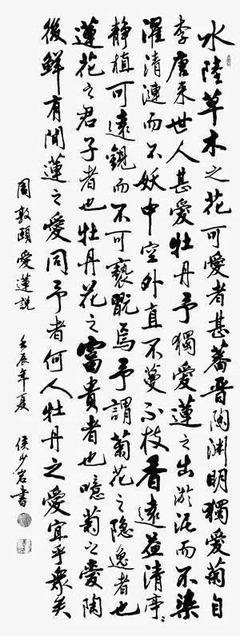 水陸草木之花可愛者甚蕃晋陶渊明獨愛菊自
李唐来世人甚愛牡丹予獨愛蓮之出於泥而不染
濯清漣而不妖中空外直不蔓不枝香遠益清亭々
静植可遠觀而不可褻翫焉予謂菊花之隐逸者也
蓮花之君子者也牡丹花之富貴者也噫菊之愛陶
後鮮有聞蓮之愛同予者何人牡丹之愛宜乎衆矣
周敦頤愛蓮説 壬辰年夏 侯少君書